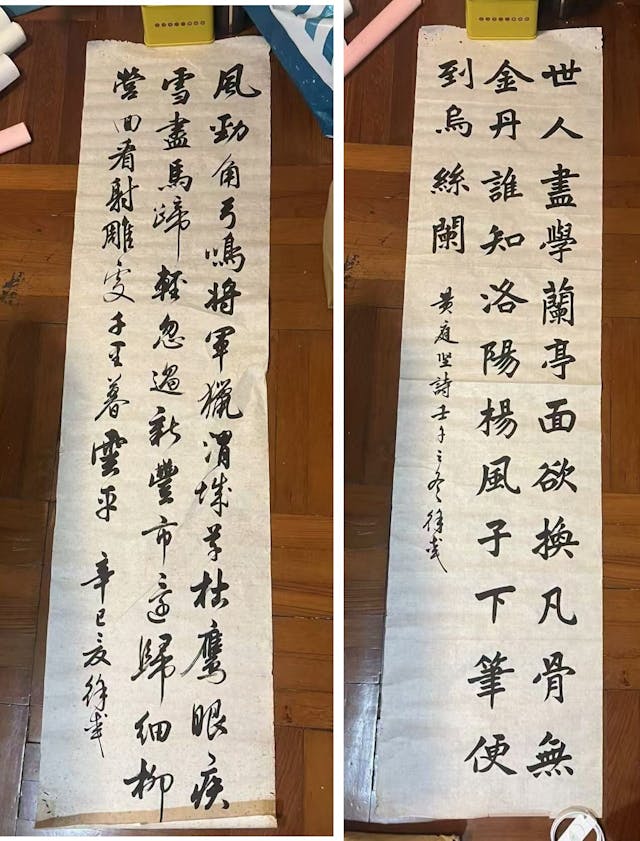 風勁角弓鳴將軍獵渭城草枯鷹眼疾
雪盡馬蹄輕忽過新豐市還歸細柳
營回看射雕處千里暮雲平 辛巳夏徐
世人盡學蘭亭面欲換凡骨無
金丹誰知洛陽楊風子下筆便
到烏絲闌
黃庭堅詩壬午之冬徐